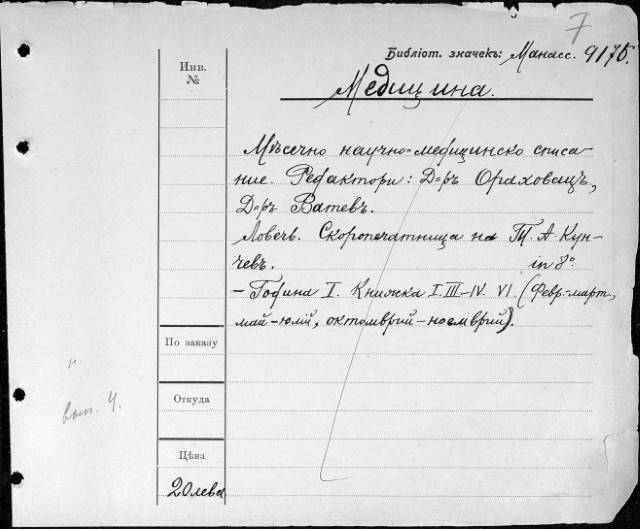 7
Библіот. значекъ: Манасс. 9175.
Инв.
№
Медицина.
Мѣсечно научно-медицинско списа-
ние. Редактори: Д-ръ Ораховацъ,
Д-ръ Ватевъ.
Ловечъ. Скоропечатница на Т. А. Кун-
чевъ. in 8°
- Година I. Книжка I. III-IV. VI. (Февр.-март,
май-юлій, октомврий-ноемврий).
По заказу
Откуда
вып. 4.
Цѣна
20 лева